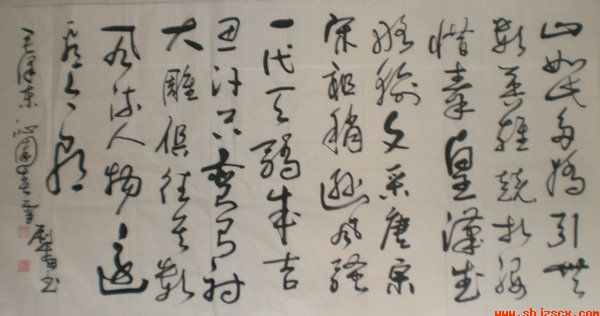 山如此多娇引無
数英雄竞折腰
惜秦皇漢武
略输文采唐宗
宋祖稍逊风骚
一代天骄成吉
思汗只弯弓射
大雕俱往矣数
风流人物还
看今朝
毛泽东 沁園春雪 书
www.shjzscx.com